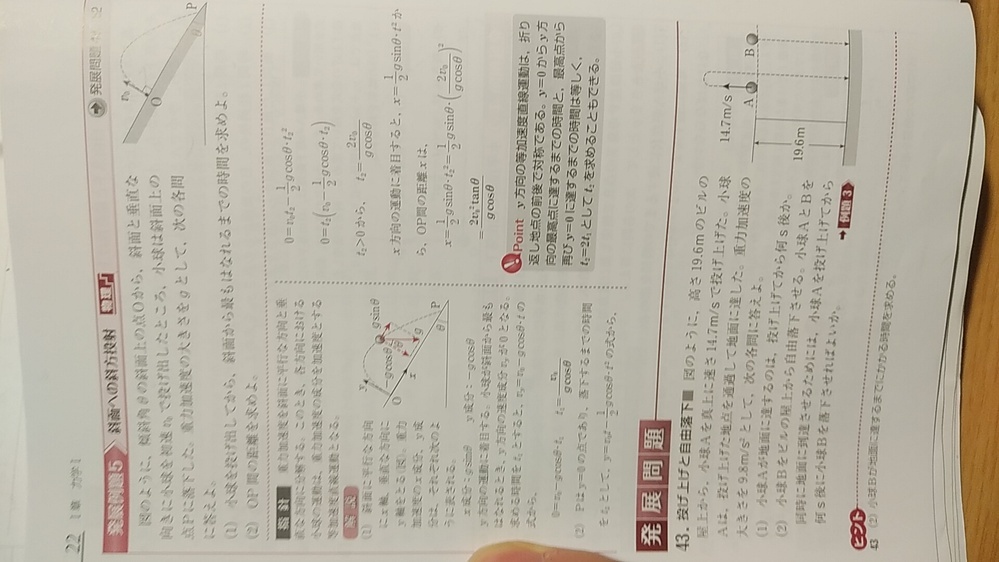 22 1章 力学Ⅰ
発展例題5 斜面への斜方投射 物理 ➡発展問題
図のように，傾斜角θの斜面上の点Oから，斜面と垂直な
向きに小球を初速v₀で投げ出したところ，小球は斜面上の
点Pに落下した。重力加速度の大きさをgとして，次の各問
に答えよ。
(1) 小球を投げ出してから，斜面から最もはなれるまでの時間を求めよ。
(2) OP間の距離を求めよ。
v₀
O
P
θ
指針 重力加速度を斜面に平行な方向と垂
直な方向に分解する。このとき，各方向における
小球の運動は，重力加速度の成分を加速度とする
等加速度直線運動となる。
解説
(1) 斜面に平行な方向
にx軸，垂直な方向に
y軸をとる(図)。重力
加速度のx成分，y成
分は，それぞれ次のよ
うに表される。
x成分：g sinθ y成分：－g cosθ
y方向の運動に着目する。小球が斜面から最も
はなれるとき，y方向の速度成分vyが0となる。
求める時間をt₁とすると，vy＝v₀－g cosθ・tの
式から，
0＝v₀－g cosθ・t₁ t₁＝v₀/(g cosθ)
(2) Pはy＝0の点であり，落下するまでの時間
をt₂として，y＝v₀t－1/2 g cosθ・t²の式から，
y
g sinθ
－g cosθ
θ
g
O
x
P
θ
0＝v₀t₂－1/2 g cosθ・t₂²
0＝t₂(v₀－1/2 g cosθ・t₂)
t₂＞0から， t₂＝2v₀/(g cosθ)
x方向の運動に着目すると，x＝1/2 g sinθ・t²か
ら，OP間の距離xは，
x＝1/2 g sinθ・t₂²＝1/2 g sinθ・(2v₀/(g cosθ))²
＝2v₀² tanθ/(g cosθ)
Point y方向の等加速度直線運動は，折り
返し地点の前後で対称である。y＝0からy方
向の最高点に達するまでの時間と，最高点から
再びy＝0に達するまでの時間は等しく，
t₂＝2t₁としてt₂を求めることもできる。
発展問題
43. 投げ上げと自由落下 図のように，高さ19.6mのビルの
屋上から，小球Aを真上に速さ14.7m/sで投げ上げた。小球
Aは，投げ上げた地点を通過して地面に達した。重力加速度の
大きさを9.8m/s²として，次の各問に答えよ。
(1) 小球Aが地面に達するのは，投げ上げてから何s後か。
(2) 小球Bをビルの屋上から自由落下させる。小球AとBを
同時に地面に到達させるためには，小球Aを投げ上げてから
何s後に小球Bを落下させればよいか。
➡例題3
14.7m/s
A
B
19.6m
ヒント
43 (2) 小球Bが地面に達するまでにかかる時間を求める。